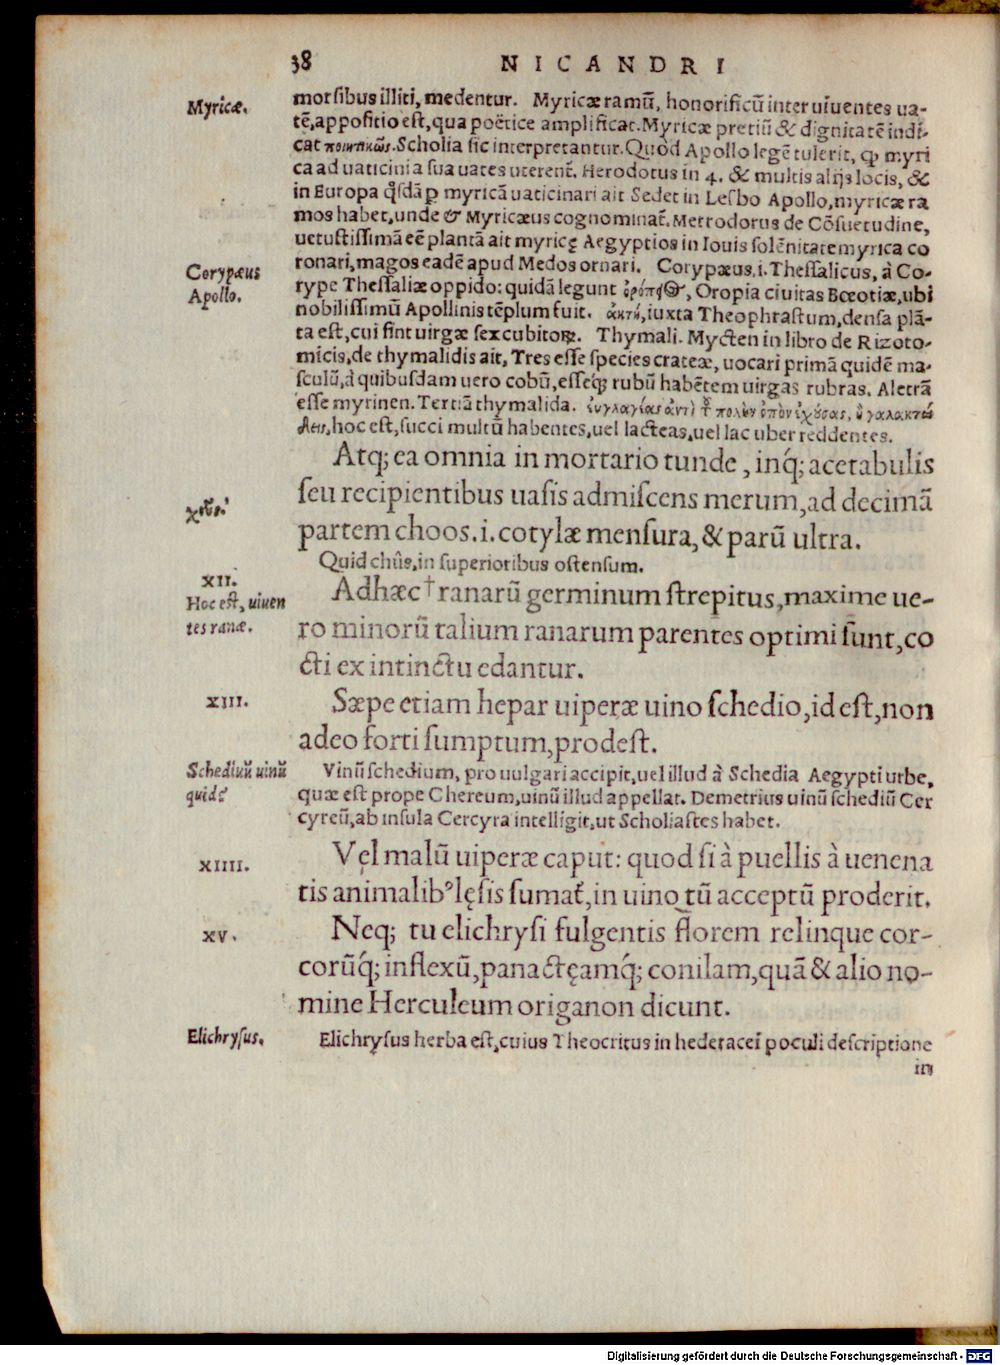 38 NICANDRI
Myricæ.
morsibus illiti, medentur. Myricæ ramũ, honorificũ inter uiuentes ua-
tẽ, appositio est, qua poëtice amplificat. Myricæ pretiũ & dignitatẽ indi-
cat ποιητικῶς. Scholia sic interpretantur. Quod Apollo legẽ tulerit, ꝙ myri
ca ad uaticinia sua uates uterent̃. Herodotus in 4. & multis alijs locis, &
in Europa q̃sdã ꝑ myricã uaticinari ait Sedet in Lesbo Apollo, myricæ ra
mos habet, unde & Myricæus cognominat̃. Metrodorus de Cõsuetudine,
uetustissimã eẽ plantã ait myricę Aegyptios in Iouis solẽnitate myrica co
ronari, magos eadẽ apud Medos ornari. Corypæus .i. Thessalicus, à Co-
Corypæus
Apollo.
rype Thessaliæ oppido: quidã legunt ὀροπῆος, Oropia ciuitas Bœotiæ, ubi
nobilissimũ Apollinis tẽplum fuit. ἀκτή, iuxta Theophrastum, densa plã-
ta est, cui sint uirgæ sex cubitoꝝ. Thymali. Mycten in libro de Rizoto-
micis, de thymalidis ait, Tres esse species crateæ, uocari primã quidẽ ma-
sculũ, à quibusdam uero cobũ, esseq́; rubũ habẽtem uirgas rubras. Aletrã
esse myrinen. Tertiã thymalida. εὐγλαγέας ἀντὶ τ πολὺν ὀπὸν ἐχούσας, ἢ γαλακτώ
δεις, hoc est, succi multũ habentes, uel lacteas, uel lac uber reddentes.
Atq; ea omnia in mortario tunde, inq́; acetabulis
seu recipientibus uasis admiscens merum, ad decimã
χοῦς.
partem choos .i. cotylæ mensura, & parũ ultra.
Quid chûs, in superioribus ostensum.
XII.
Hoc est, uiuen
tes ranæ.
Ad hæc † ranarũ germinum strepitus, maxime ue-
ro minorũ talium ranarum parentes optimi sunt, co
cti ex intinctu edantur.
XIII.
Sæpe etiam hepar uiperæ uino schedio, id est, non
adeo forti sumptum, prodest.
Schediuũ uinũ
quid?
Vinũ schedium, pro uulgari accipit, uel illud à Schedia Aegypti urbe,
quæ est prope Chereum, uinũ illud appellat. Demetrius uinũ schediũ Cer
cyreũ, ab insula Cercyra intelligit, ut Scholiastes habet.
XIIII.
Vel malũ uiperæ caput: quod si à puellis à uenena
tis animalibꝰ lęsis sumat̃, in uino tũ acceptũ proderit.
XV.
Neq; tu elichrysi fulgentis florem relinque cor-
corũq́; inflexũ, panactęamq́; conilam, quã & alio no-
mine Herculeum origanon dicunt.
Elichrysus.
Elichrysus herba est, cuius Theocritus in hederacei poculi descriptione
in
Digitalisierung gefördert durch die Deutsche Forschungsgemeinschaft - DFG